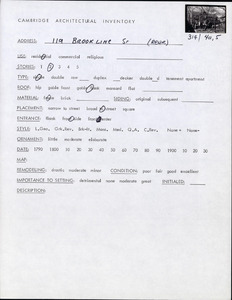 CAMBRIDGE ARCHITECTURAL INVENTORY
314 / 40, 5
ADDRESS: 119 BROOKLINE ST (REAR)
USE: residential commercial religious
STORIES: 1 2 3 4 5
TYPE: single double row duplex decker double d tenement apartment
ROOF: hip gable hood gable mansard flat
MATERIAL: brick SIDING: original subsequent
PLACEMENT: narrow to street broad to street square
ENTRANCE: flank side center
ORNAMENT: little moderate elaborate
DATE: 1790 1800 10 20 30 40 50 60 70 80 90 1900 10 20 30
MAP:
REMODELING: drastic moderate minor CONDITION: poor fair good excellent
IMPORTANCE TO SETTING: detrimental none moderate great INITIALED:
DESCRIPTION: